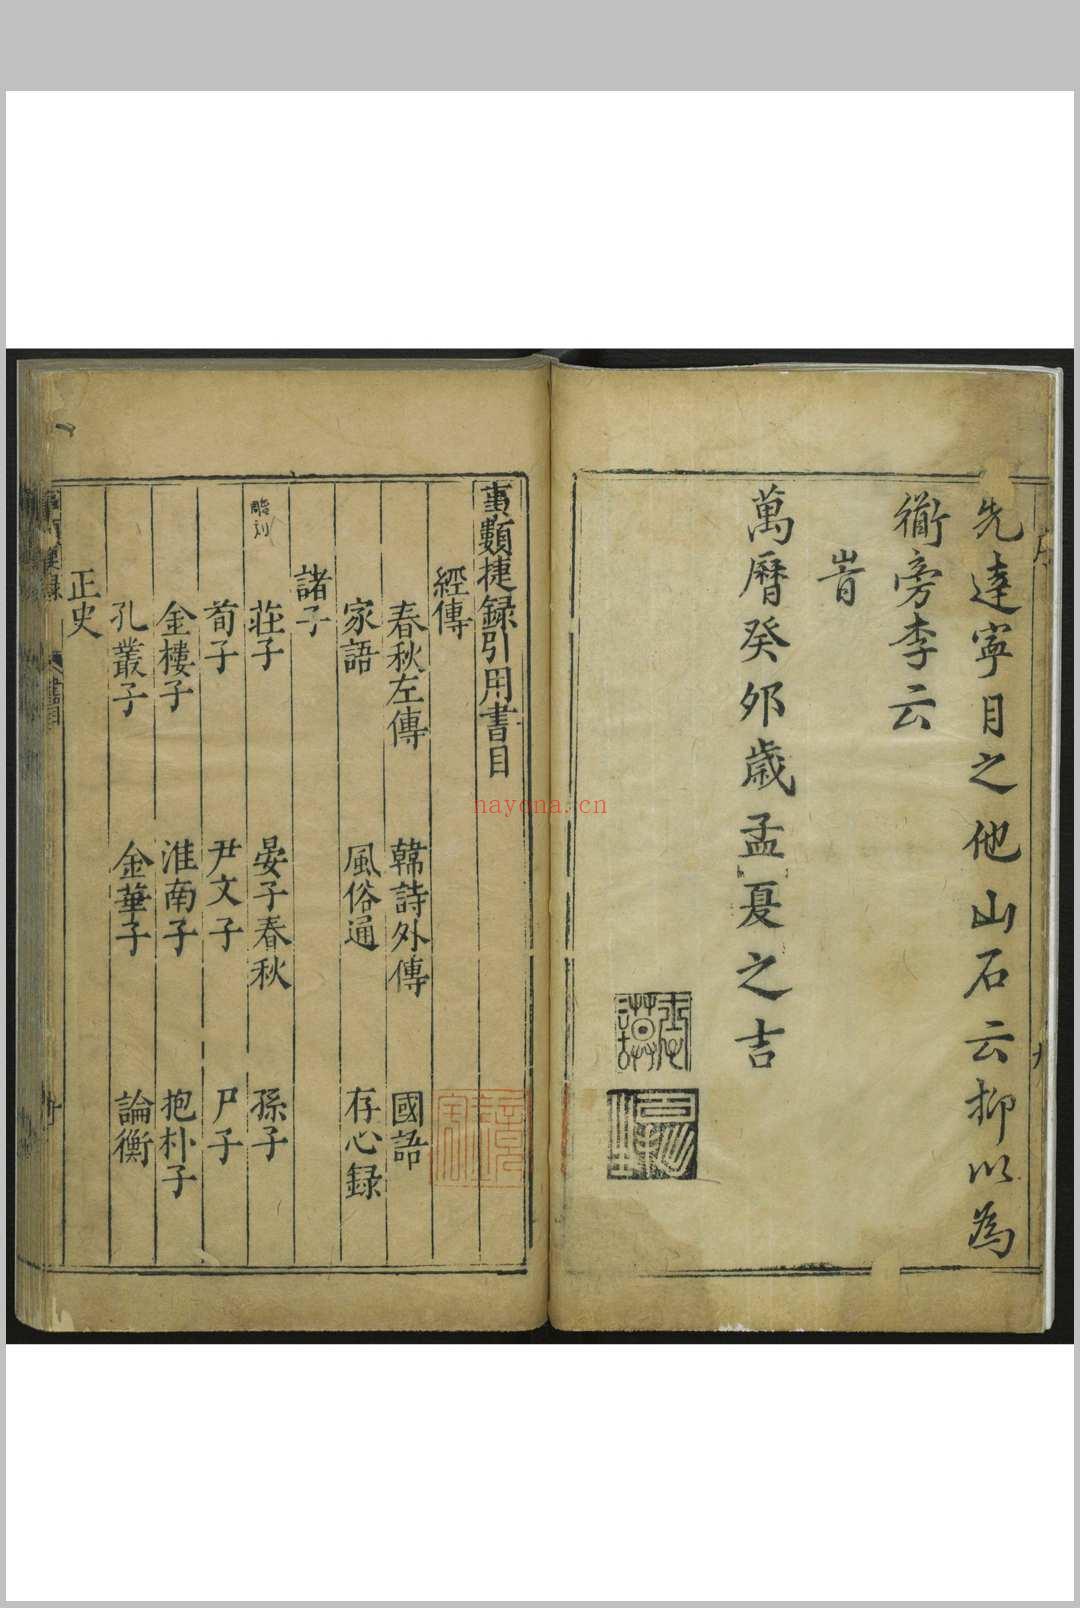 先達寧目之他山石云抑以為
衕旁李云
旹
萬曆癸夘歲孟夏之吉
事類捷録引用書目
經傳
春秋左傳 韓詩外傳 國語
家語 風俗通 存心録
諸子
莊子 晏子春秋 孫子
荀子 尹文子 尸子
金樓子 淮南子 抱朴子
孔叢子 金華子 論衡
正史
nayona.cn